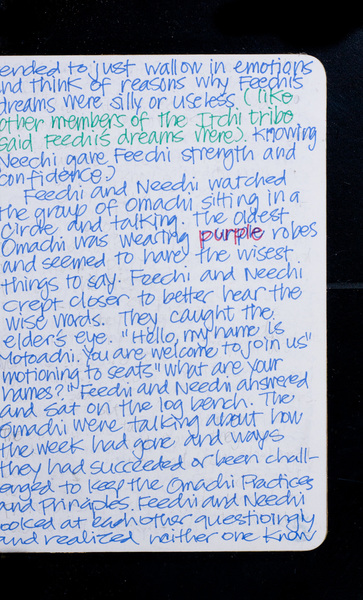 ended to just wallow in emotions
and think of reasons why Feechi's
dreams were silly or useless (like
other members of the Itchi tribe
said Feechi's dreams were). Knowing
Neechi gave Feechi strength and
confidence.)
Feechi and Needhi watched
the group of Omachi sitting in a
circle and talking. The oldest
Omachi was wearing purple robes
and seemed to have the wisest
things to say. Feechi and Neechi
crept closer to better hear the
wise words. They caught the
elder's eye. "Hello, my name is
Motoachi. You are welcome to join us"
motioning to seats "what are your
names?" Feechi and Needhi answered
and sat on the log bench. The
Omachi were talking about how
the week had gone and ways
they had succeeded or been chall-
enged to keep the Omachi Practices
and Principles. Feechi and Neechi
looked at each other questioningly
and realized neither one know